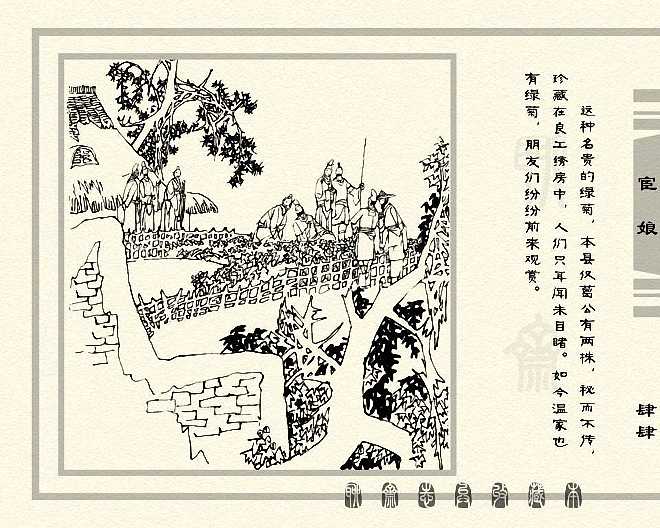 宦娘
肆肆
这种名贵的绿菊，本县仅葛公有两株，秘而不传，
珍藏在良工绣房中，人们只耳闻未目睹。如今温家也
有绿菊，朋友们纷纷前来观赏。
聊斋志异收藏本